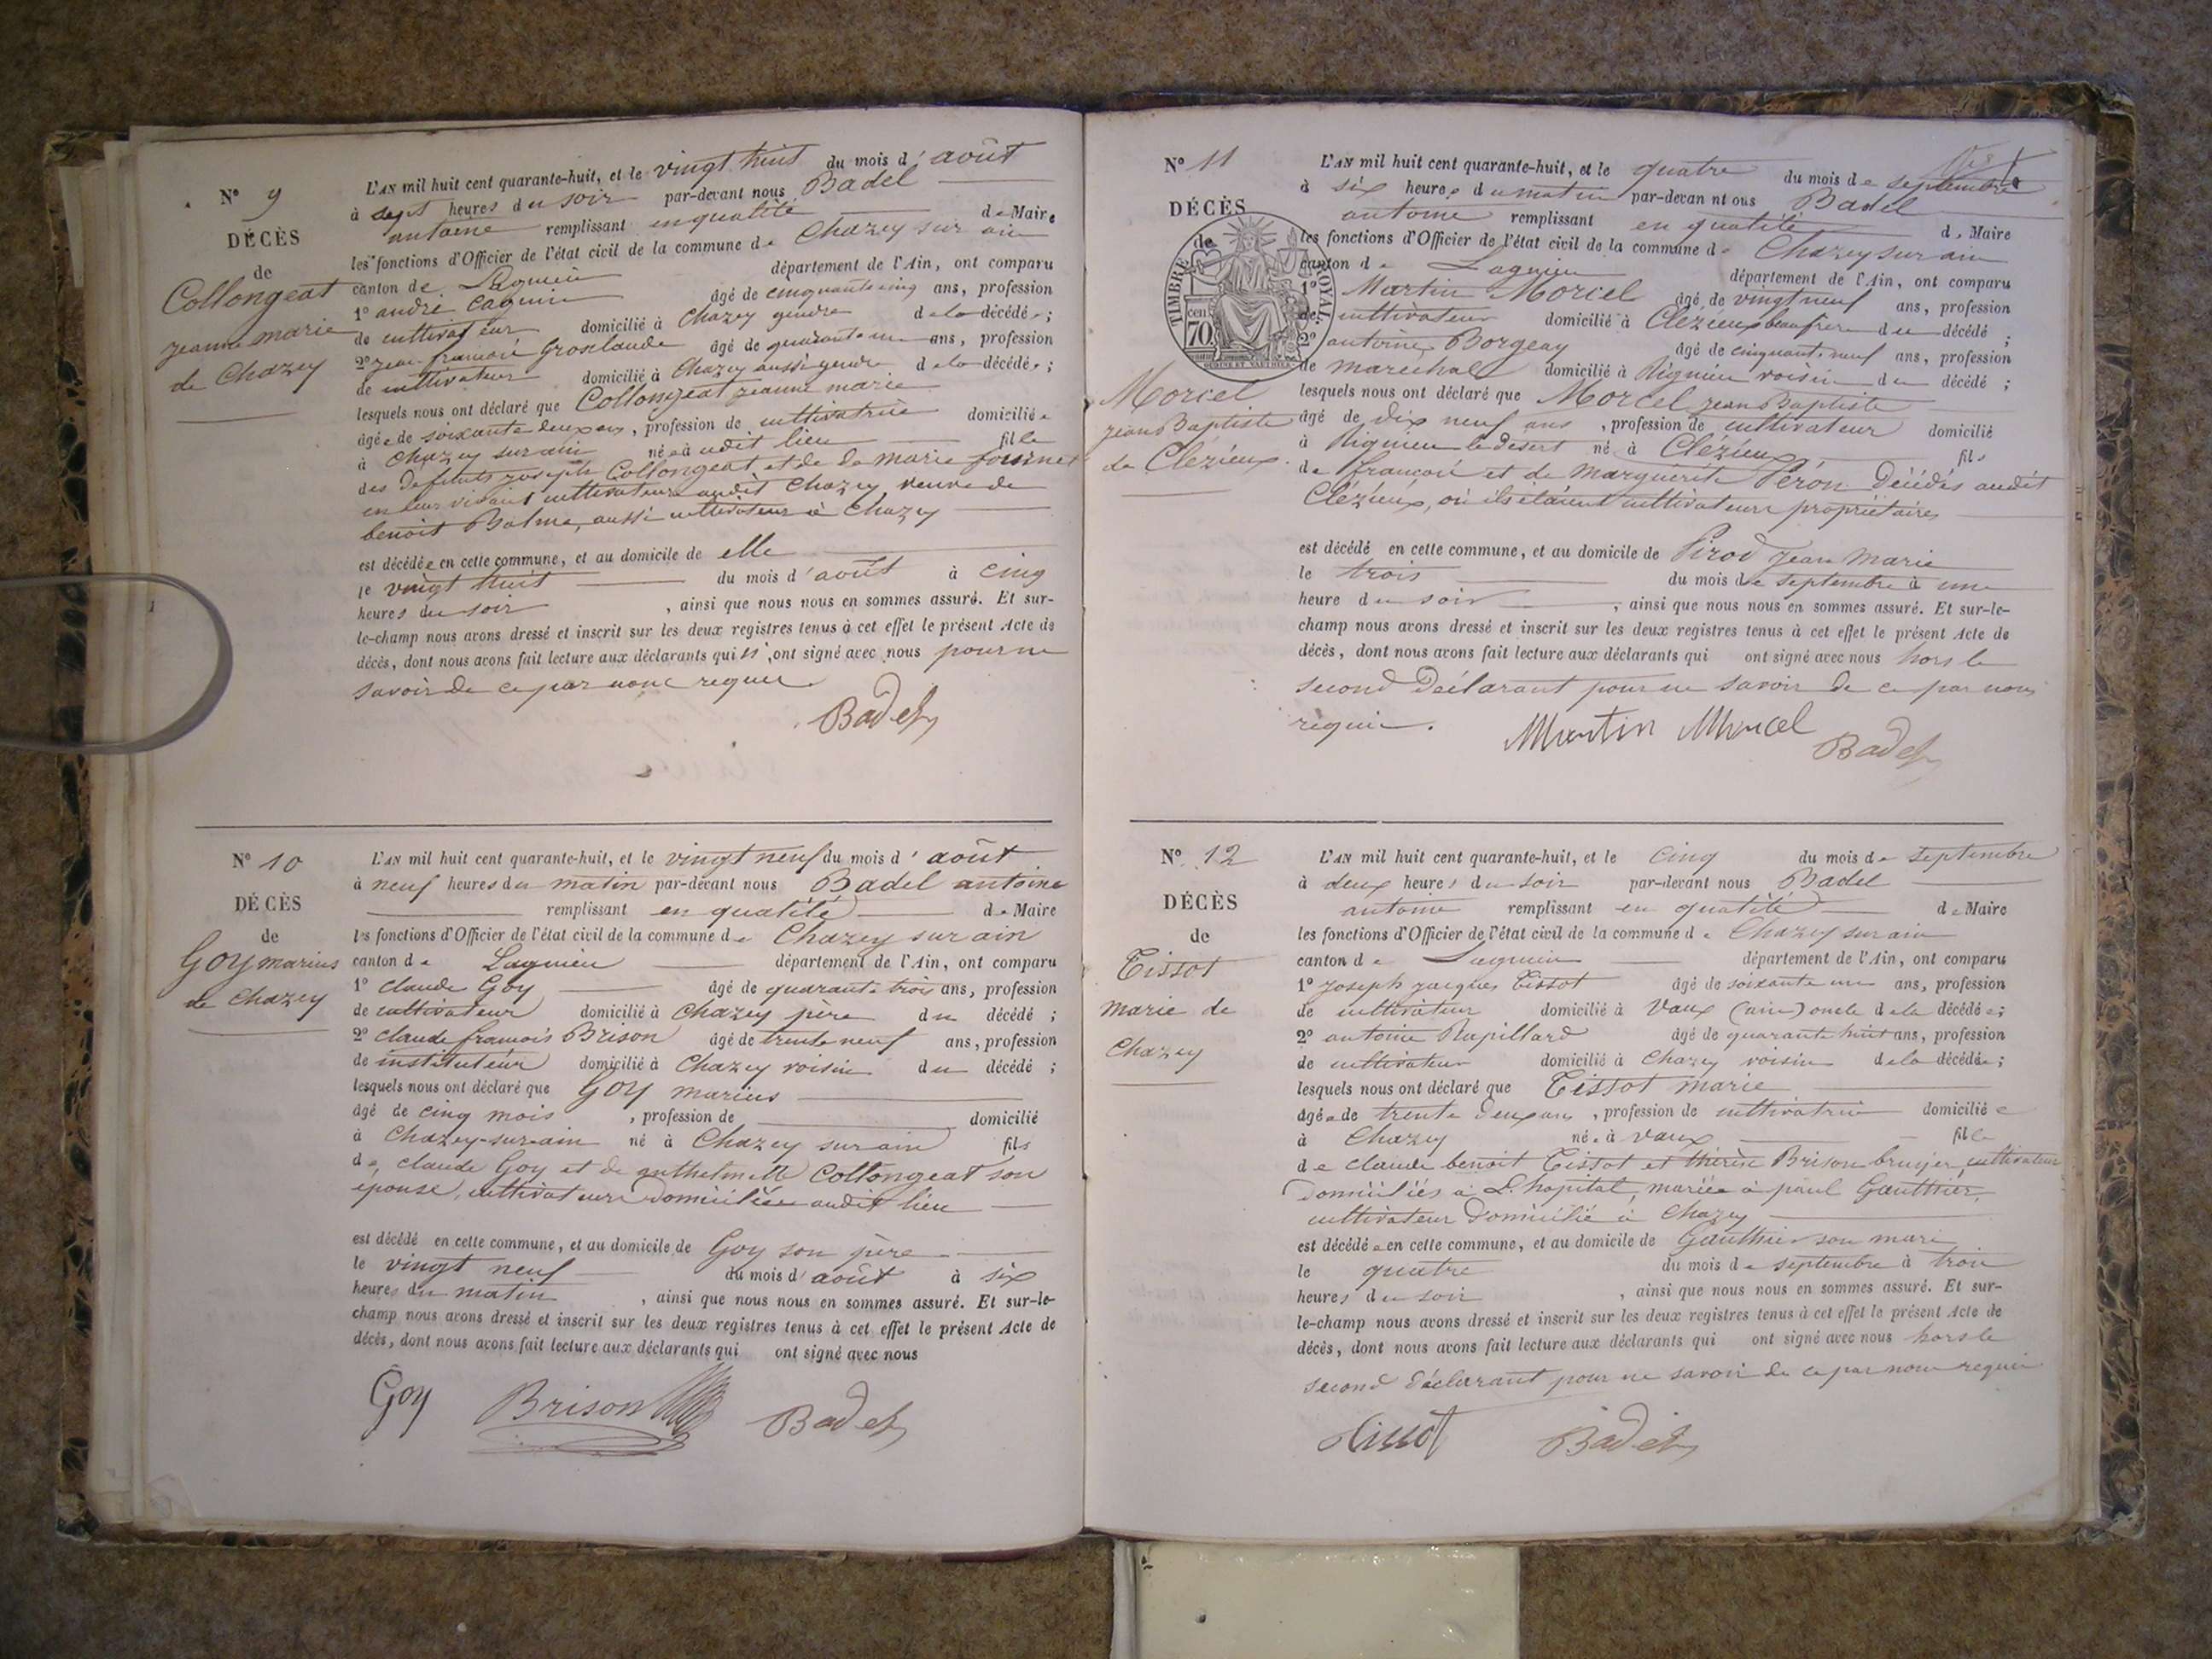 N° 9
DÉCÈS
de
Collongeat
jeanne marie
de Chazey
L'AN mil huit cent quarante-huit, et le vingt huit du mois d' août
à sept heures du soir par-devant nous Badel
antoine remplissant en qualité de Maire
les fonctions d'Officier de l'état civil de la commune de Chazey sur ain
canton de Lagnieu département de l'Ain, ont comparu
1° andré âgé de cinquante cinq ans, profession
de cultivateur domicilié à Chazey gendre de la décédée ;
2° jean françois Groslaude âgé de quarante un ans, profession
de cultivateur domicilié à Chazey aussi gendre de la décédée ;
lesquels nous ont déclaré que Collongeat jeanne marie
âgée de soixante deux ans, profession de cultivatrice domiciliée
à Chazey sur ain née à udit lieu fille
des defunts joseph Collongeat et de de marie fournet
en leur vivant cultivateurs audit Chazey, veuve de
benoit Balme, aussi cultivateur à Chazey
est décédée en cette commune, et au domicile de elle
le vingt huit du mois d'août à cinq
heures du soir , ainsi que nous nous en sommes assuré. Et sur-
le-champ nous avons dressé et inscrit sur les deux registres tenus à cet effet le présent Acte de
décès, dont nous avons fait lecture aux déclarants qui n' ont signé avec nous pour ne
savoir de ce par nous requis
Badel
N° 10
DÉCÈS
de
Goy marius
de Chazey
L'AN mil huit cent quarante-huit, et le vingt neuf du mois d' août
à neuf heures du matin par-devant nous Badel antoine
remplissant en qualité de Maire
les fonctions d'Officier de l'état civil de la commune de Chazey sur ain
canton de Lagnieu département de l'Ain, ont comparu
1° claude Goy âgé de quarante trois ans, profession
de cultivateur domicilié à Chazey père du décédé ;
2° claude francois Brison âgé de trente neuf ans, profession
de instituteur domicilié à Chazey voisin du décédé ;
lesquels nous ont déclaré que Goy marius
âgé de cinq mois , profession de domicilié
à Chazey-sur-ain né à Chazey sur ain fils
de claude Goy et de anthelmette Collongeat son
épouse, cultivateurs domiciliés audit lieu
est décédé en cette commune, et au domicile de Goy son père
le vingt neuf du mois d'août à six
heures du matin , ainsi que nous nous en sommes assuré. Et sur-le-
champ nous avons dressé et inscrit sur les deux registres tenus à cet effet le présent Acte de
décès, dont nous avons fait lecture aux déclarants qui ont signé avec nous
Goy Brison Badel
N° 11
DÉCÈS
de
TIMBRE ROYAL
70 cen
Morcel
jean Baptiste
de Clézieux
L'AN mil huit cent quarante-huit, et le quatre du mois de septembre
à six heures du matin par-devan nt ous Badel
antoine remplissant en qualité de Maire
les fonctions d'Officier de l'état civil de la commune de Chazey sur ain
canton de Lagnieu département de l'Ain, ont comparu
1° Martin Morcel âgé de vingt neuf ans, profession
de cultivateur domicilié à Clézieux beaufrère du décédé ;
2° antoine Borgeay âgé de cinquante neuf ans, profession
de marechal domicilié à Rignieu voisin du décédé ;
lesquels nous ont déclaré que Morcel jean Baptiste
âgé de dix neuf ans , profession de cultivateur domicilié
à Rignieu le desert né à Clézieux fils
de françois et de marguerite Péron Décédés audit
Clézieux, où ils étaient cultivateurs propriétaires
est décédé en cette commune, et au domicile de Pirod jean marie
le trois du mois de septembre à une
heure du soir , ainsi que nous nous en sommes assuré. Et sur-le-
champ nous avons dressé et inscrit sur les deux registres tenus à cet effet le présent Acte de
décès, dont nous avons fait lecture aux déclarants qui ont signé avec nous hors le
second Déclarant pour ne savoir de ce par nous
requis.
Martin Morcel Badel
N° 12
DÉCÈS
de
Tissot
marie de
Chazey
L'AN mil huit cent quarante-huit, et le cinq du mois de septembre
à deux heures du soir par-devant nous Badel
antoine remplissant en qualité de Maire
les fonctions d'Officier de l'état civil de la commune de Chazey sur ain
canton de Lagnieu département de l'Ain, ont comparu
1° joseph jacques Tissot âgé de soixante un ans, profession
de cultivateur domicilié à Vaux (ain) oncle de la décédée ;
2° antoine Rapillard âgé de quarante huit ans, profession
de cultivateur domicilié à Chazey voisin de la décédée ;
lesquels nous ont déclaré que Tissot marie
âgée de trente deux ans , profession de cultivatrice domiciliée
à Chazey née à vaux fille
de claude benoit Tissot et thérèse Brison bruyer cultivateurs
Domiciliés à L'hopital, mariée à paul Gauthier,
cultivateur Domicilié à Chazey
est décédée en cette commune, et au domicile de Gauthier son mari
le quatre du mois de septembre à trois
heures du soir , ainsi que nous nous en sommes assuré. Et sur-
le-champ nous avons dressé et inscrit sur les deux registres tenus à cet effet le présent Acte de
décès, dont nous avons fait lecture aux déclarants qui ont signé avec nous hors le
second déclarant pour ne savoir de ce par nous requis
Tissot Badel